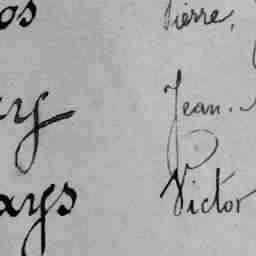 os Pierre,
ry Jean.
ays Victor